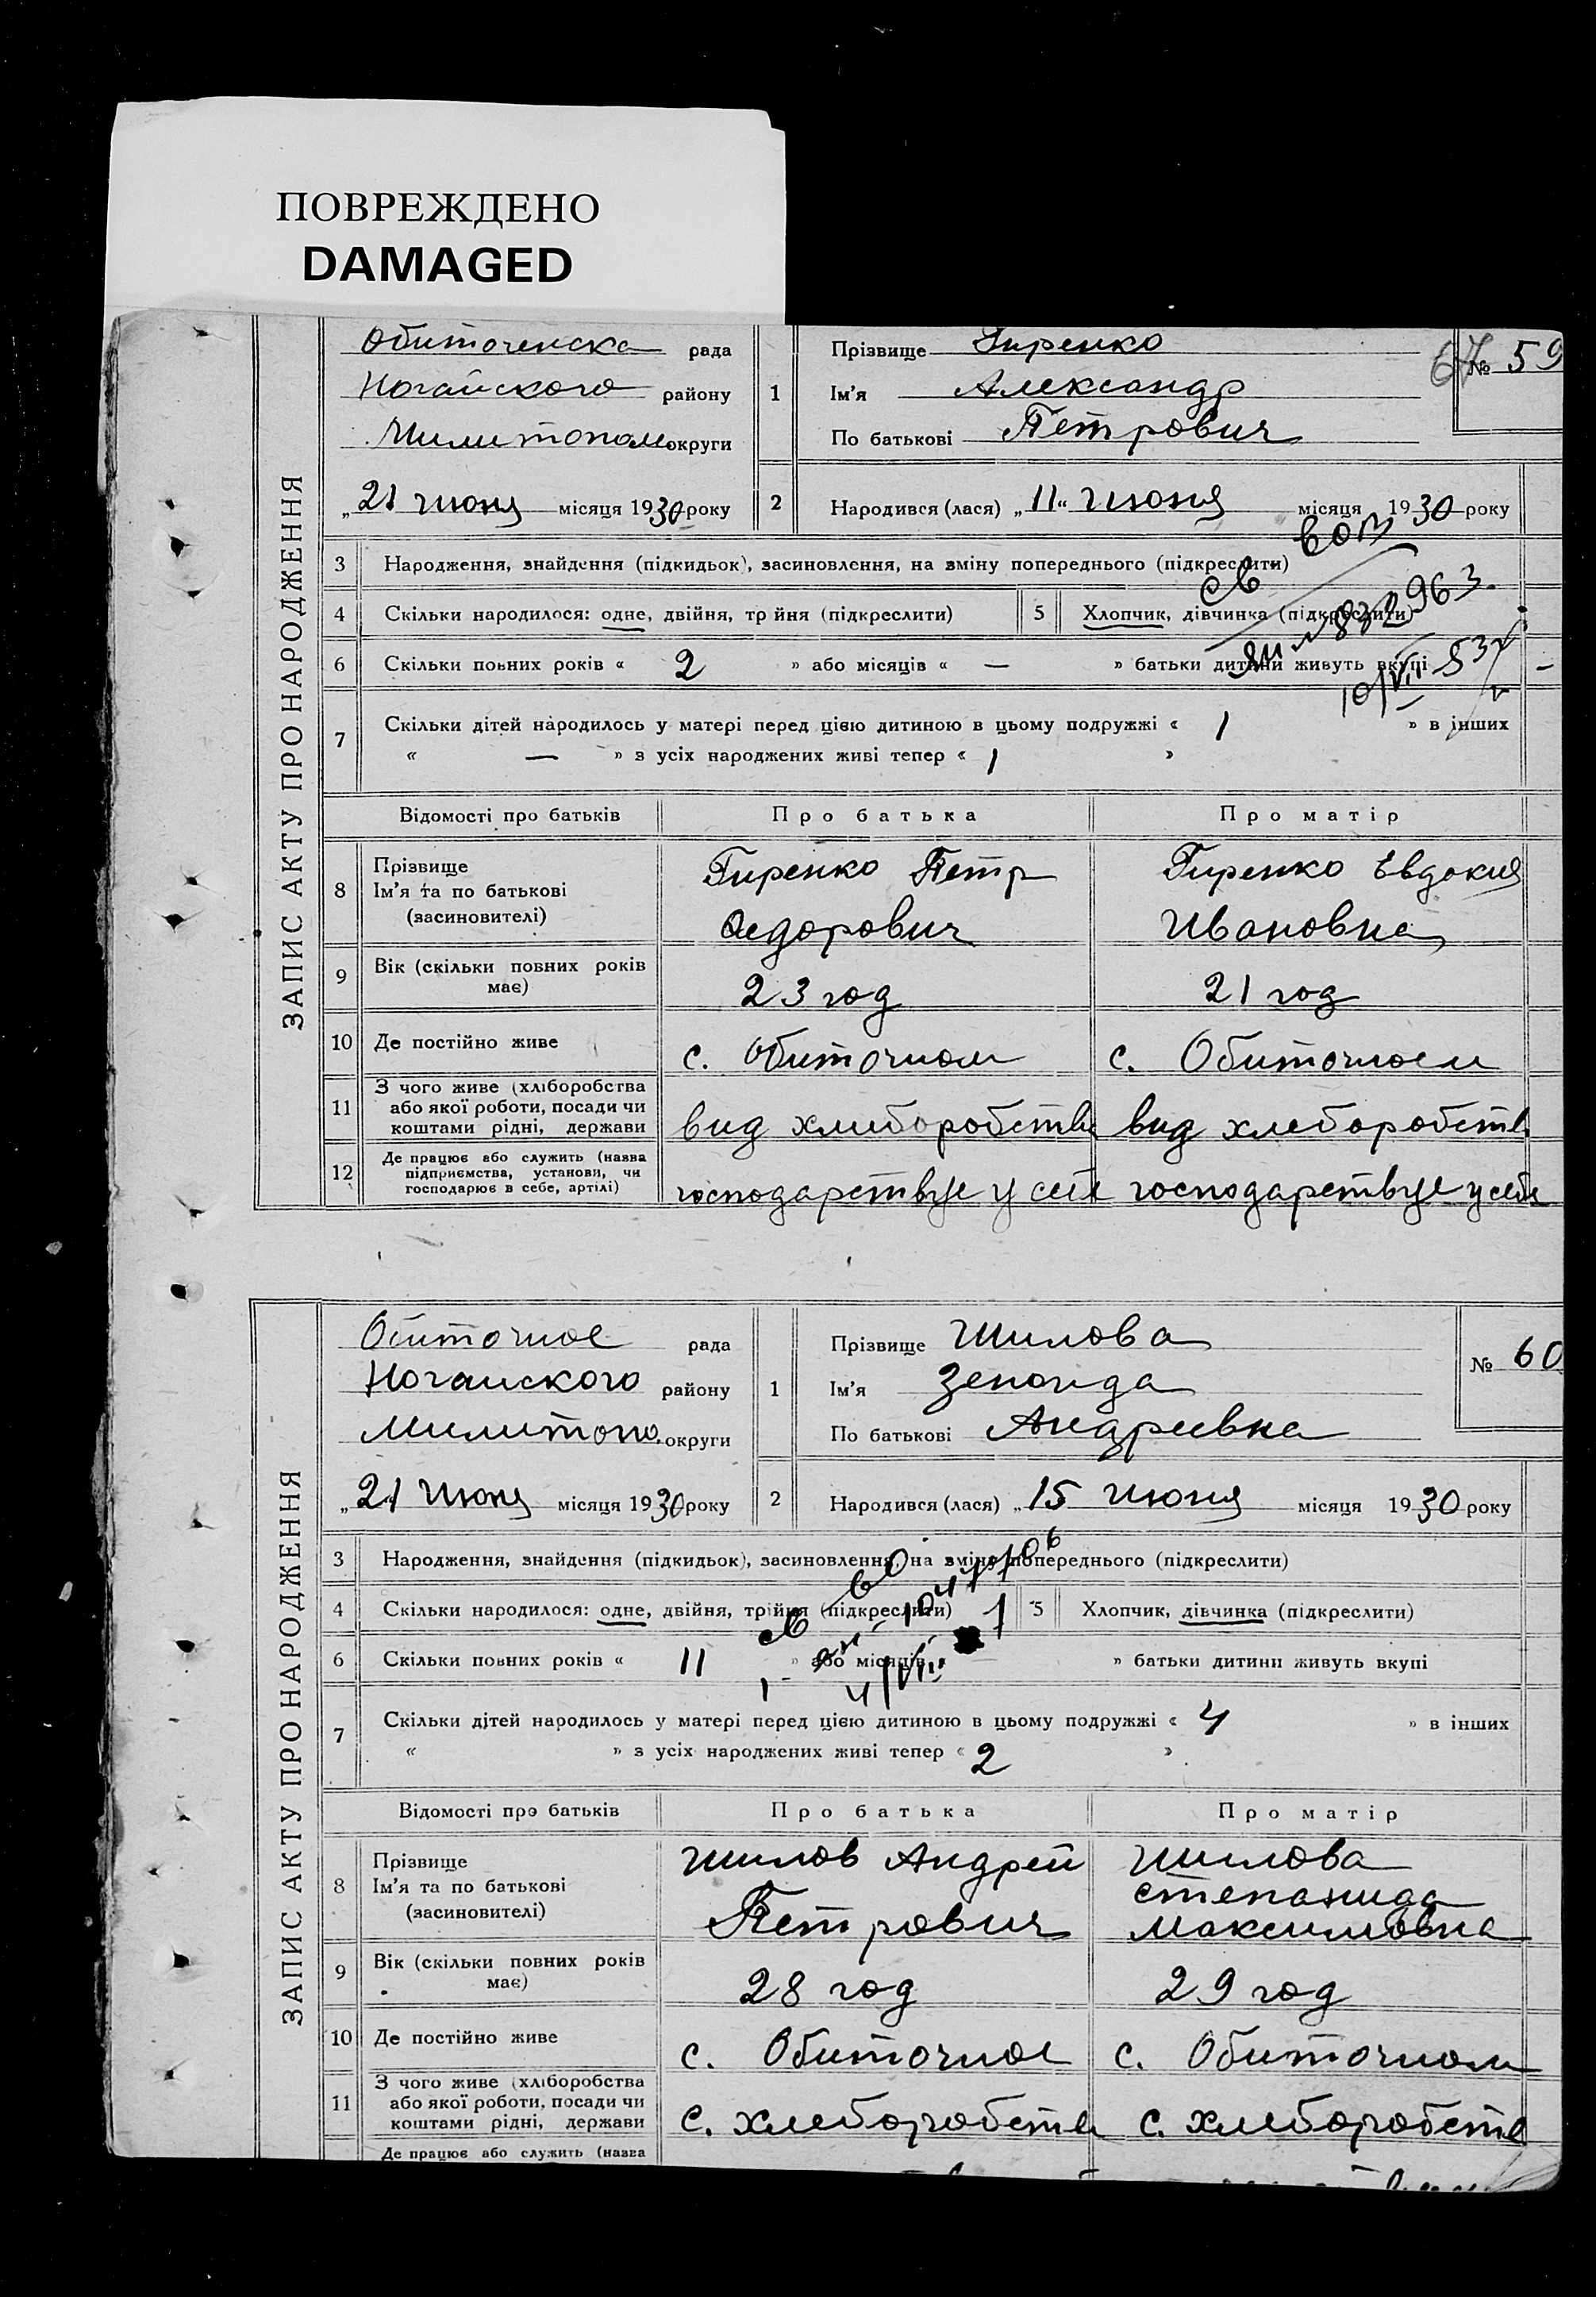 ПОВРЕЖДЕНО
DAMAGED
ЗАПИС АКТУ ПРО НАРОДЖЕННЯ
Обиточенска рада
Ногайского району
округи
„21 июня місяця 1930 року
1
Прізвище Гиренко
Ім'я Александр
По батькові Петрович
№ 59
67
2
Народився (лася) „11“ июня місяця 1930 року
3 Народження, знайдення (підкидьок), засиновлення, на зміну попереднього (підкреслити)
4 Скільки народилося: одне, двійня, тр йня (підкреслити)
5 Хлопчик, дівчинка (підкреслити)
6 Скільки повних років « 2 » або місяців « — » батьки дитини живуть вкупі —
7 Скільки дітей народилось у матері перед цією дитиною в цьому подружжі « 1 » в інших
« — » з усіх народжених живі тепер « 1 »
св
10/VIII 53
Відомості про батьків
Про батька
Про матір
8 Прізвище
Ім'я та по батькові
(засиновителі)
Гиренко Петр
Гиренко Евдокия
Ивановна
9 Вік (скільки повних років
має)
23 год
21 год
10 Де постійно живе
с. Обиточном
с. Обиточном
11 З чого живе (хліборобства
або якої роботи, посади чи
коштами рідні, держави
вид хлиборобства
вид хлеборобств
12 Де працює або служить (назва
підприємства, установи, чи
господарює в себе, артілі)
господарствує у себе
господарствує у себе
ЗАПИС АКТУ ПРО НАРОДЖЕННЯ
Обиточное рада
Ногаиского району
Милитопо. округи
„21 июня місяця 1930 року
1
Прізвище Шилова
Ім'я Зенаида
По батькові Андреевна
№ 60
2
Народився (лася) „15 июня місяця 1930 року
3 Народження, знайдення (підкидьок), засиновлення, на зміну попереднього (підкреслити)
4 Скільки народилося: одне, двійня, трійня (підкреслити)
5 Хлопчик, дівчинка (підкреслити)
6 Скільки повних років « 11 » або місяців « » батьки дитини живуть вкупі
7 Скільки дітей народилось у матері перед цією дитиною в цьому подружжі « 4 » в інших
« » з усіх народжених живі тепер « 2 »
св
Відомості про батьків
Про батька
Про матір
8 Прізвище
Ім'я та по батькові
(засиновителі)
Шилов Андрей
Петрович
Шилова
Степанида
Максимовна
9 Вік (скільки повних років
має)
28 год
29 год
10 Де постійно живе
с. Обиточное
с. Обиточном
11 З чого живе (хліборобства
або якої роботи, посади чи
коштами рідні, держави
с. хлеборобств
с. хлеборобств
Де працює або служить (назва